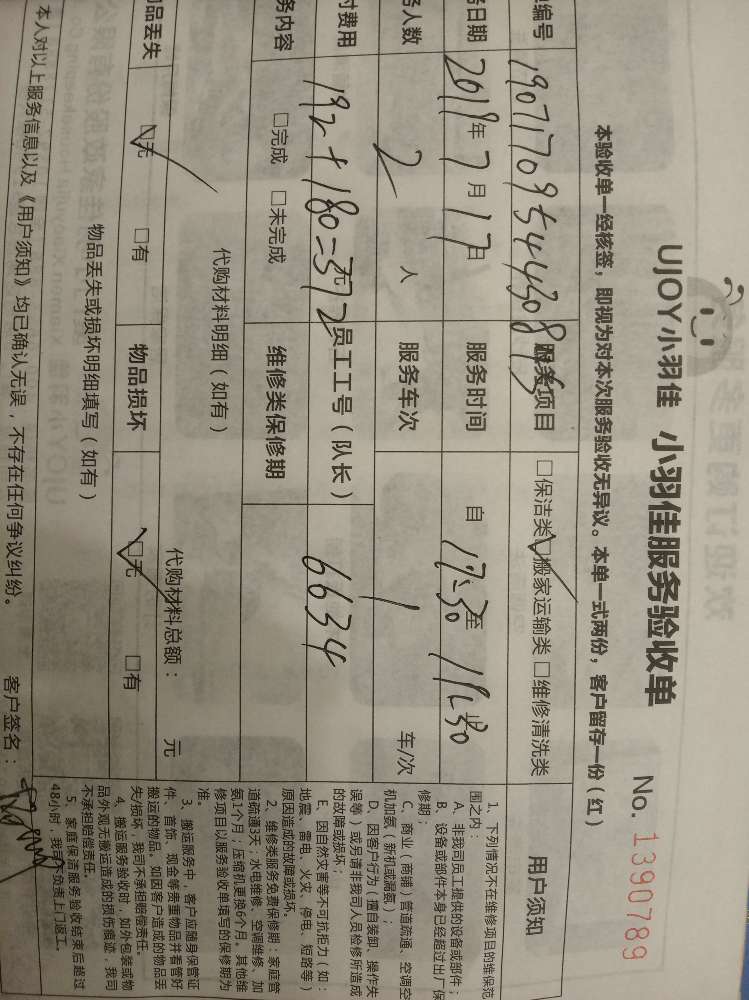 UJOY小羽佳 小羽佳服务验收单 No. 1390789
本验收单一经核签，即视为对本次服务验收无异议。本单一式两份，客户留存一份（红）
编号 服务项目 □保洁类 □搬家运输类 □维修清洗类
日期 2019年7月17日 服务时间 自 17:30 至 18:30 止
人数 2 人 服务车次 1 车/次
付费用 192+180=372元 员工工号（队长） 6634
务内容 □完成 □未完成 维修类保修期
代购材料明细（如有） 代购材料总额： 元
物品丢失 □无 □有 物品损坏 □无 □有
物品丢失或损坏明细填写（如有）
本人对以上服务信息以及《用户须知》均已确认无误，不存在任何争议纠纷。 客户签名：
用户须知
1、下列情况不在维修项目的维保范
围之内：
A、非我司员工提供的设备或部件；
B、设备或部件本身已经超过出厂保
修期；
C、商业（商铺）管道疏通、空调空
机加氨（新机或漏氨）；
D、因客户行为（擅自装卸、操作失
误等）或另请非我司人员检修所造成
的故障或损坏；
E、因自然灾害等不可抗拒力（如：
地震、雷电、火灾、停电、短路等）
原因造成的故障或损坏。
2、维修类服务免费保修期：家庭管
道疏通3天；水电维修、空调维修、加
氨1个月；压缩机更换6个月。其他维
修项目以服务验收单填写的保修期为
准。
3、搬运服务中，客户应随身保管证
件、首饰、现金等贵重物品并看管好
搬运的物品。如因客户造成的物品丢
失/损坏，我司不承担赔偿责任。
4、搬运服务验收时，如外包装或物
品外观无搬运造成的损伤痕迹，我司
不承担赔偿责任。
5、家庭保洁服务验收结束后超过
48小时，我司不负责上门返工。